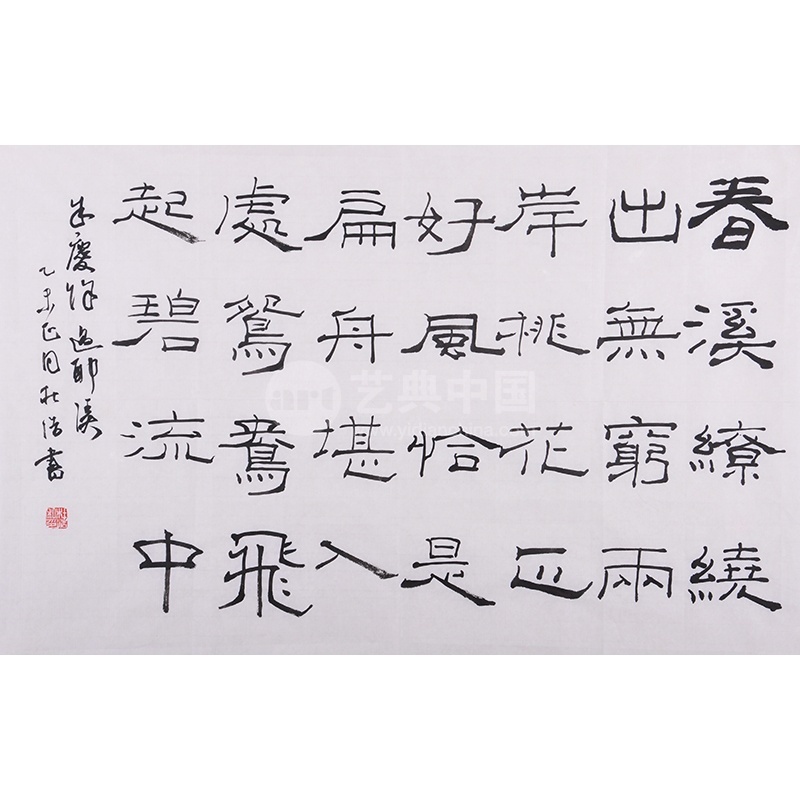 春溪繚繞
出無窮兩
岸桃花正
好風恰是
扁舟堪入
處鴛鴦飛
起碧流中
朱慶馀過耶溪
乙未正月杜浩書
art 艺典中国
www.yidianchina.com